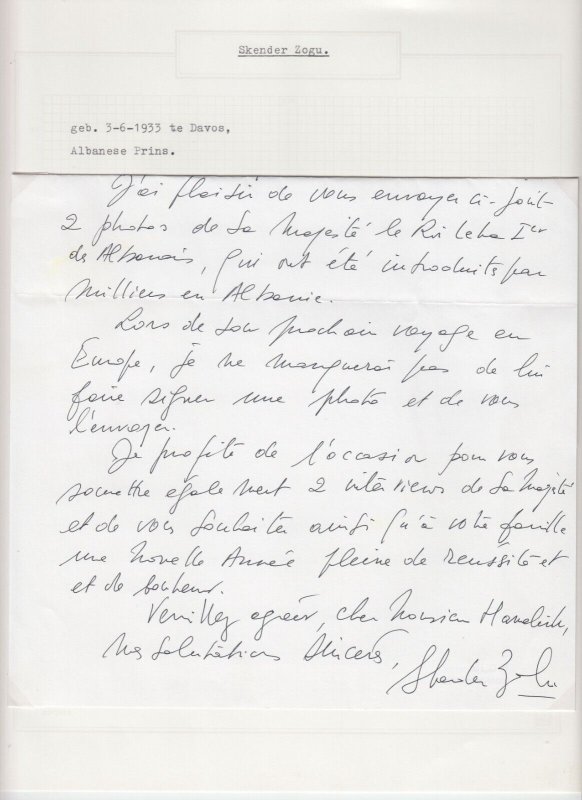 Skender Zogu.
geb. 3-6-1933 te Davos,
Albanese Prins.
J'ai plaisir de vous envoyer ci-joint
2 photos de Sa Majesté le Roi Leka Ier
des Albanais, qui ont été introduits par
milliers en Albanie.
Lors de son prochain voyage en
Europe, je ne manquerai pas de lui
faire signer une photo et de vous
l'envoyer.
Je profite de l'occasion pour vous
soumettre également 2 interviews de Sa Majesté
et de vous souhaiter ainsi qu'à votre famille
une Nouvelle Année pleine de réussite et
et de bonheur.
Veuillez agréer, cher Monsieur
mes salutations sincères,
Skender Zogu